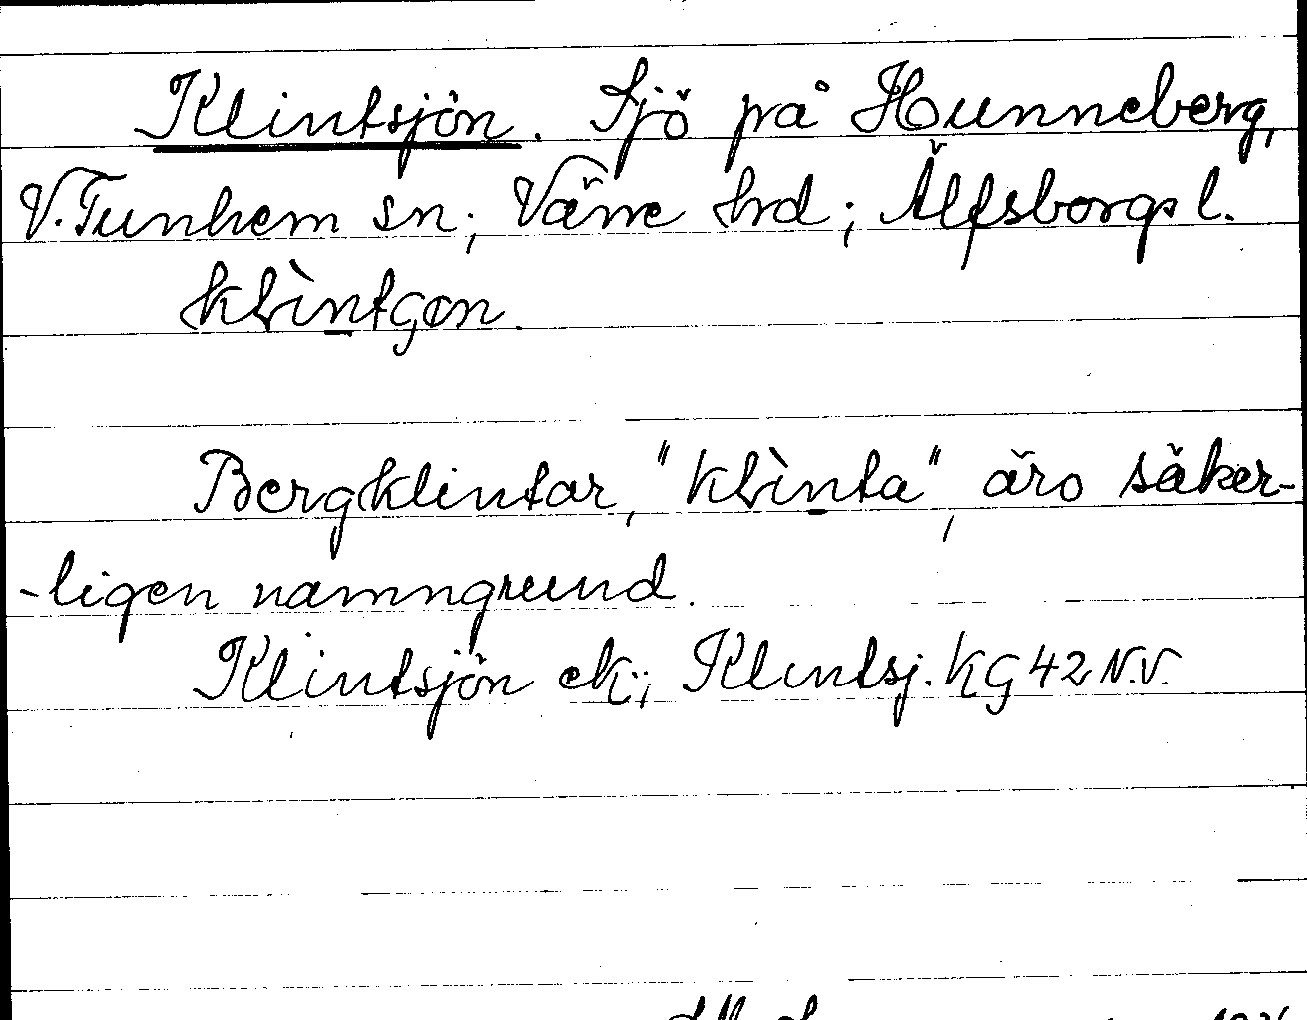 Klintsjön. Sjö på Hunneberg,
V. Tunhem sn; Väne hrd; Älfsborgs l.
klìntʃɷn.
Bergklintar, "klìnta", äro säker-
-ligen namngrund.
Klintsjön ek.; Klintsj. KG 42 N.V.